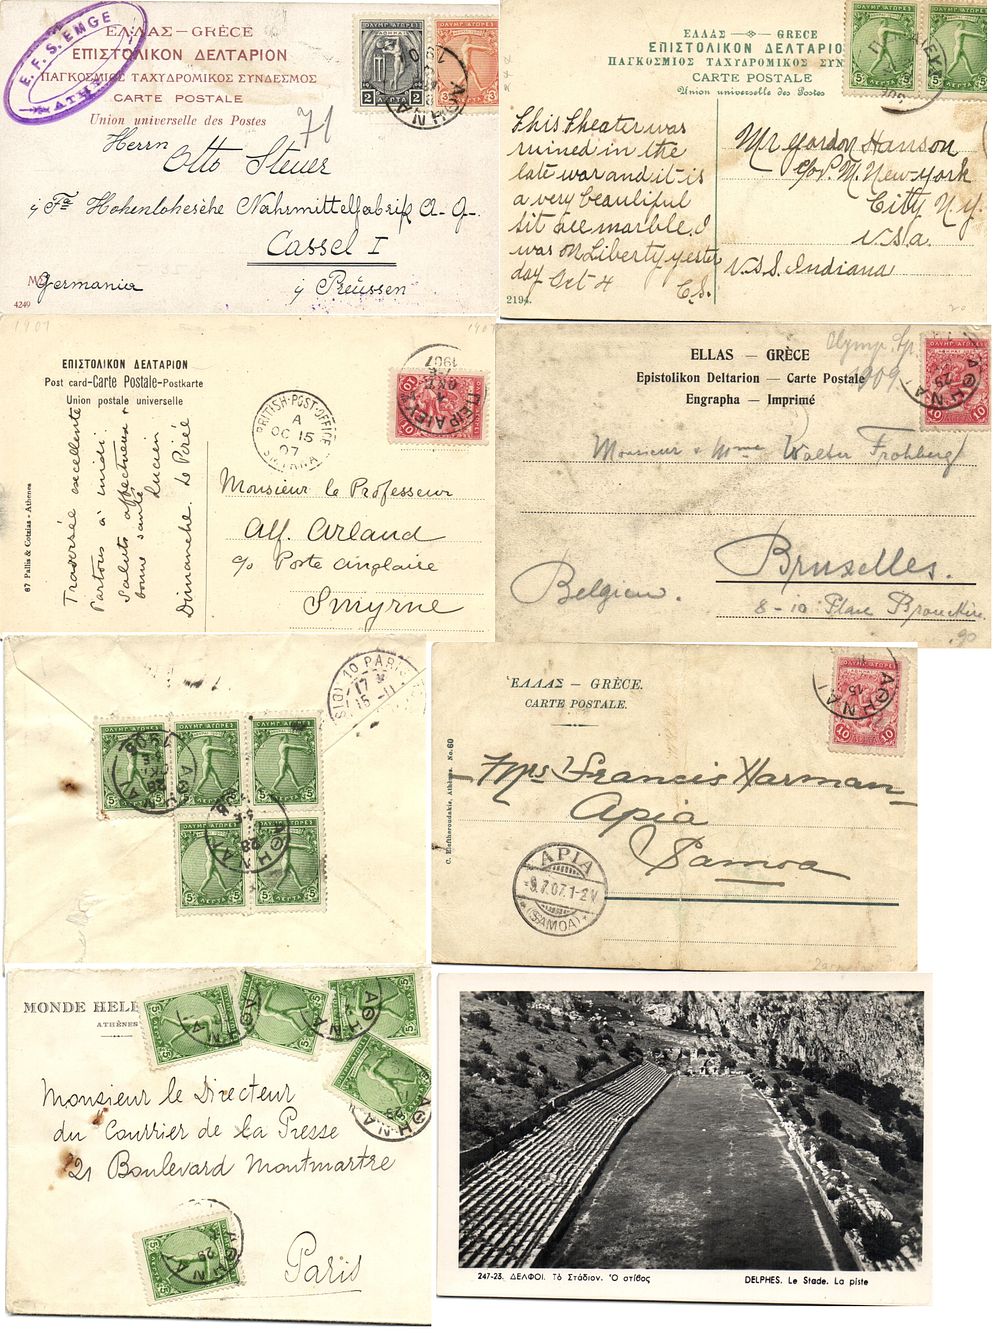 E. F. S. EMGE
ΑΤΗ
ΕΛΛΑΣ – GRÈCE
ΕΠΙΣΤΟΛΙΚΟΝ ΔΕΛΤΑΡΙΟΝ
ΠΑΓΚΟΣΜΙΟΣ ΤΑΧΥΔΡΟΜΙΚΟΣ ΣΥΝΔΕΣΜΟΣ
CARTE POSTALE
Union universelle des Postes
71
Herrn
Otto Steuer
Fa Hohenlohesche Nährmittelfabrik A-G-
Cassel I
Germania
Preussen
4249
ΟΛΥΜΠ. ΑΓΩΡΕΣ
2 ΛΕΠΤΑ
ΑΘΗΝΑΙ
ΕΛΛΑΣ GRECE
ΕΠΙΣΤΟΛΙΚΟΝ ΔΕΛΤΑΡΙΟ
ΠΑΓΚΟΣΜΙΟΣ ΤΑΧΥΔΡΟΜΙΚΟΣ ΣΥΝ
CARTE POSTALE
Union universelle des Postes
5 5 5 5
This Theater was
ruined in the
late war and it is
a very beautiful
sit all marble. I
was on Liberty yester
day Oct 4 C.S.
Mr Gordon Hanson
c/o P. M. New-york
City N.Y.
U.S.a.
U.S.S. Indiana
2194
1907
1907
ΕΠΙΣΤΟΛΙΚΟΝ ΔΕΛΤΑΡΙΟΝ
Post card-Carte Postale-Postkarte
Union postale universelle
67 Pallis & Cotzias - Athènes
Traversée excellente
Partons à midi.
Saluts affectueux &
bonne santé
Lucien
Dimanche. Le Pirée
BRITISH-POST-OFFICE
A
OC 15
07
SMYRNA
ΠΕΙΡΑΙΕΥΣ
1907
10 10
Monsieur le Professeur
Alf. Arland
c/o Poste Anglaise
Smyrne
ELLAS — GRÈCE
Epistolikon Deltarion — Carte Postale
Engrapha — Imprimé
Olymp. Sp.
1909
ΑΘΗΝΑΙ
10 10
Monsieur & Mme Walter Frohberg
Bruxelles.
Belgien.
8-10 Place Brouckère
90
10 PARIS
17
15
ΟΛΥΜΠ. ΑΓΩΡΕΣ
5 ΛΕΠΤΑ 5
ΑΘΗΝΑΙ
ΑΘΗΝΑΙ
ΕΛΛΑΣ – GRÈCE.
CARTE POSTALE.
C. Eleftheroudakis, Athènes, No. 60
ΑΘΗΝΑΙ
15
10 10
Mrs Francis Harman
Apia
Samoa
APIA
9.7.07.1-2V
(SAMOA)
MONDE HELL
ATHÈNES
ΑΘΗΝΑΙ
ΑΘΗΝΑΙ
ΑΘΗΝΑΙ
Monsieur le Directeur
du Courrier de la Presse
21 Boulevard Montmartre
Paris
ΑΘΗΝΑΙ
247-23. ΔΕΛΦΟΙ. Τὸ Στάδιον. Ὁ στίβος
DELPHES. Le Stade. La piste